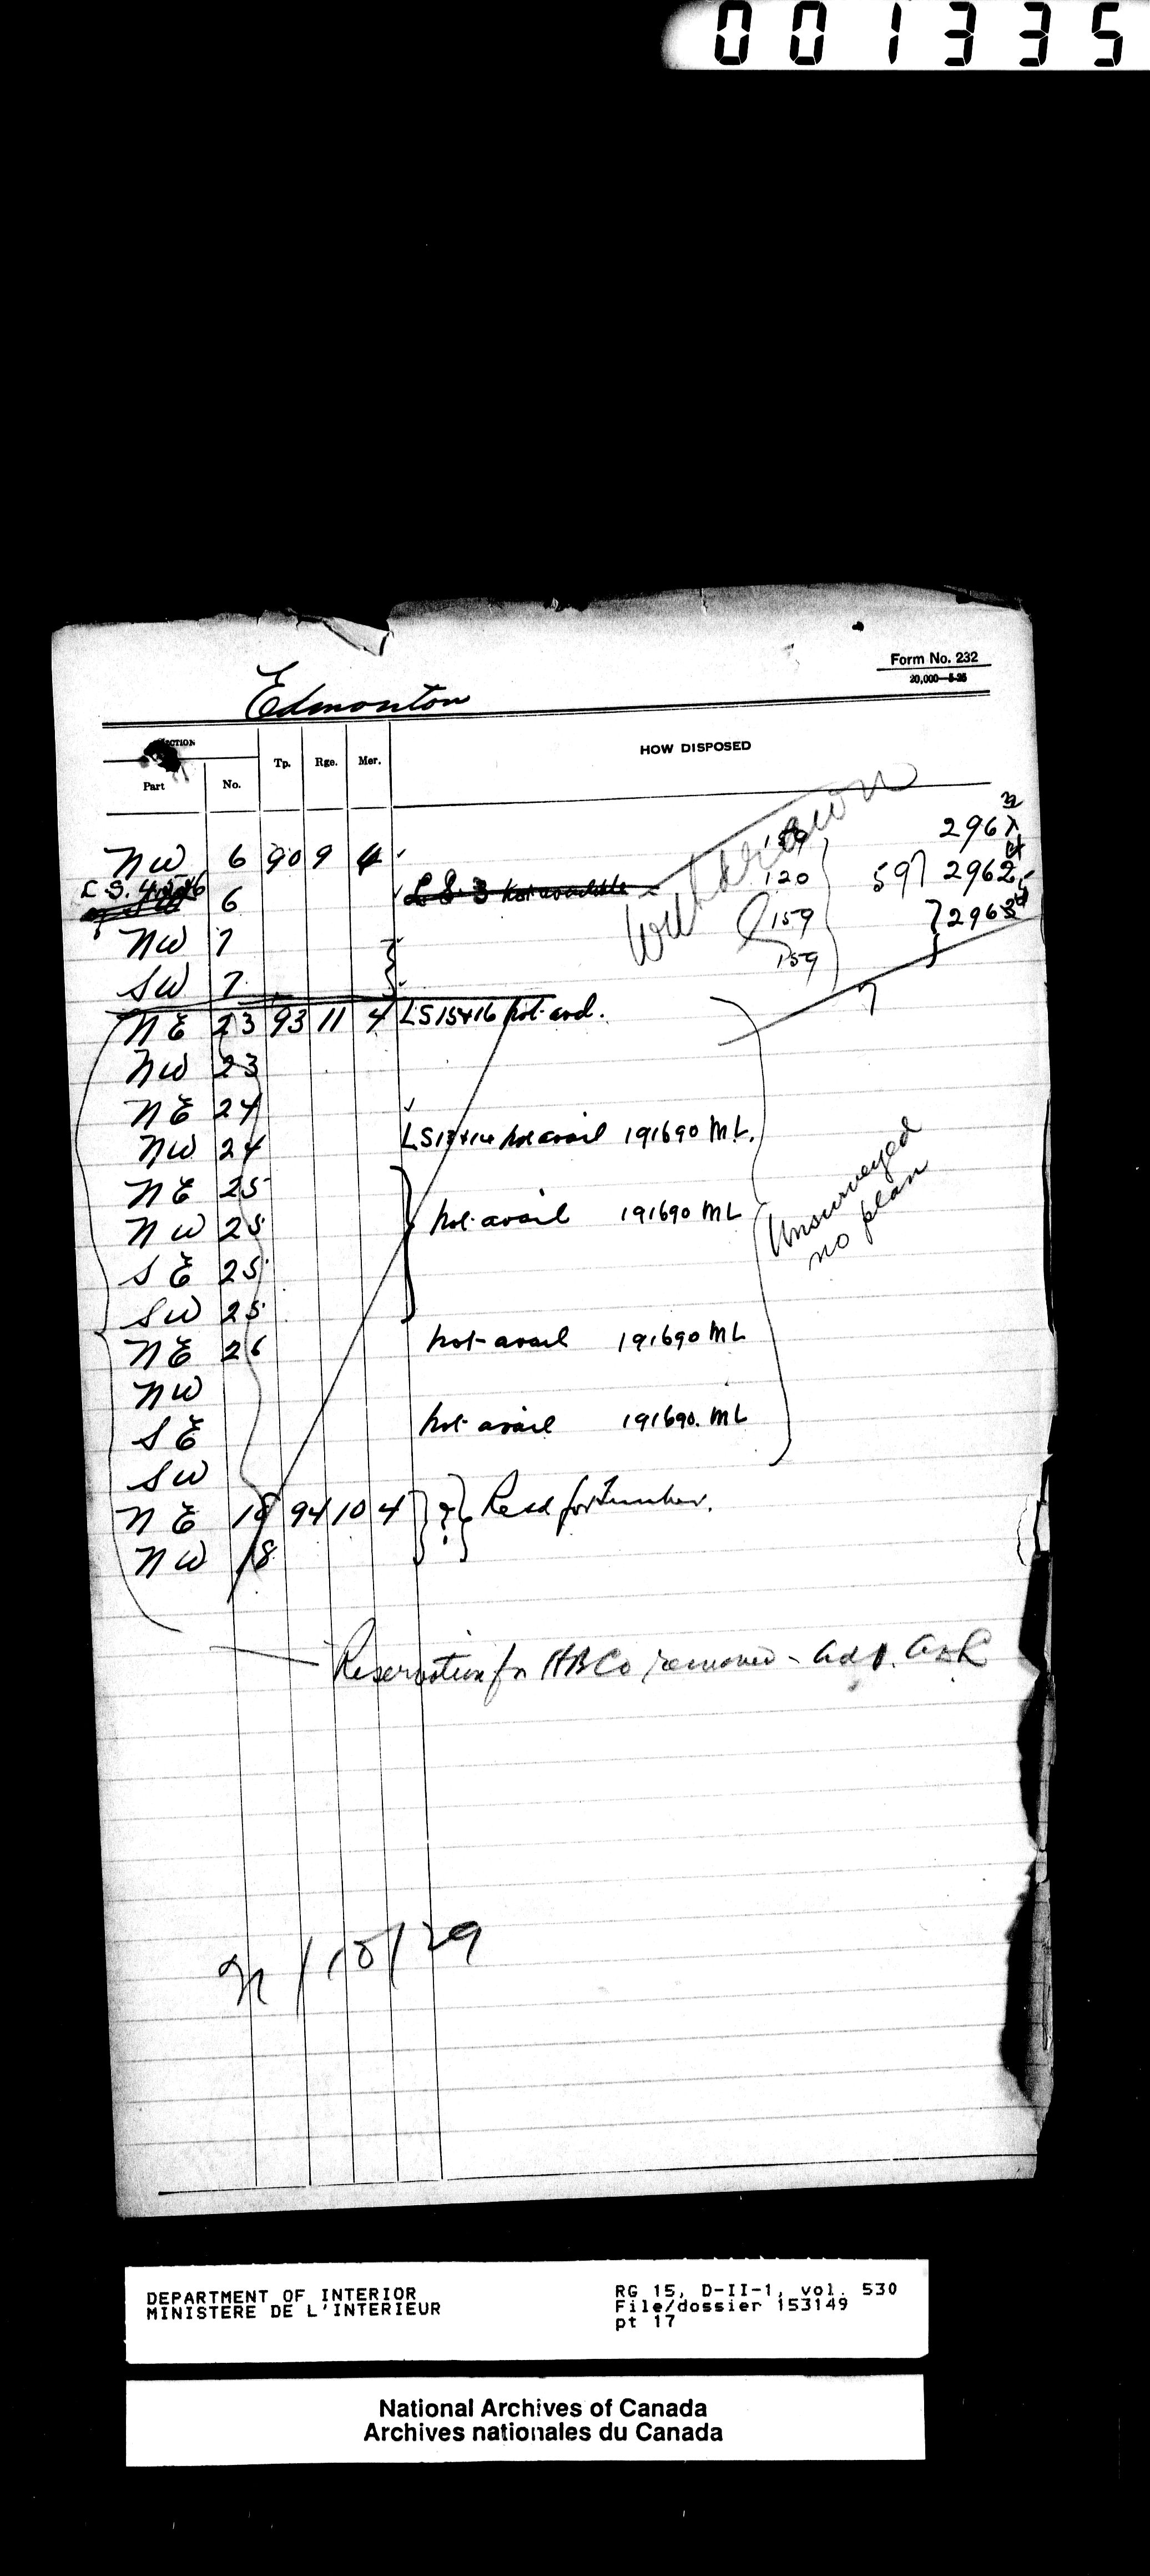 001335
Form No. 232
20,000—5-25
Edmonton
SECTION Tp. Rge. Mer. HOW DISPOSED
Part No.
Withdrawn
NW 6 90 9 4 159 296
L.S. 4, 5 & 6 6 L S 3 not available 120 597 2962
NW 7 159 2963
SW 7 159
7
NE 23 93 11 4 LS 15 & 16 not avl.
NW 23
NE 24
NW 24 LS 13 & 14 not avail 191690 ML.
NE 25
NW 25 not avail 191690 ML
SE 25
SW 25
Unsurveyed
no plan
NE 26 not avail 191690 ML
NW
SE not avail 191690. ML
SW
NE 18 94 10 4 ? Resd for Timber.
NW 18
Reservation for HBCo removed -
/10/29
DEPARTMENT OF INTERIOR
MINISTERE DE L'INTERIEUR
RG 15, D-II-1, vol. 530
File/dossier 153149
pt 17
National Archives of Canada
Archives nationales du Canada